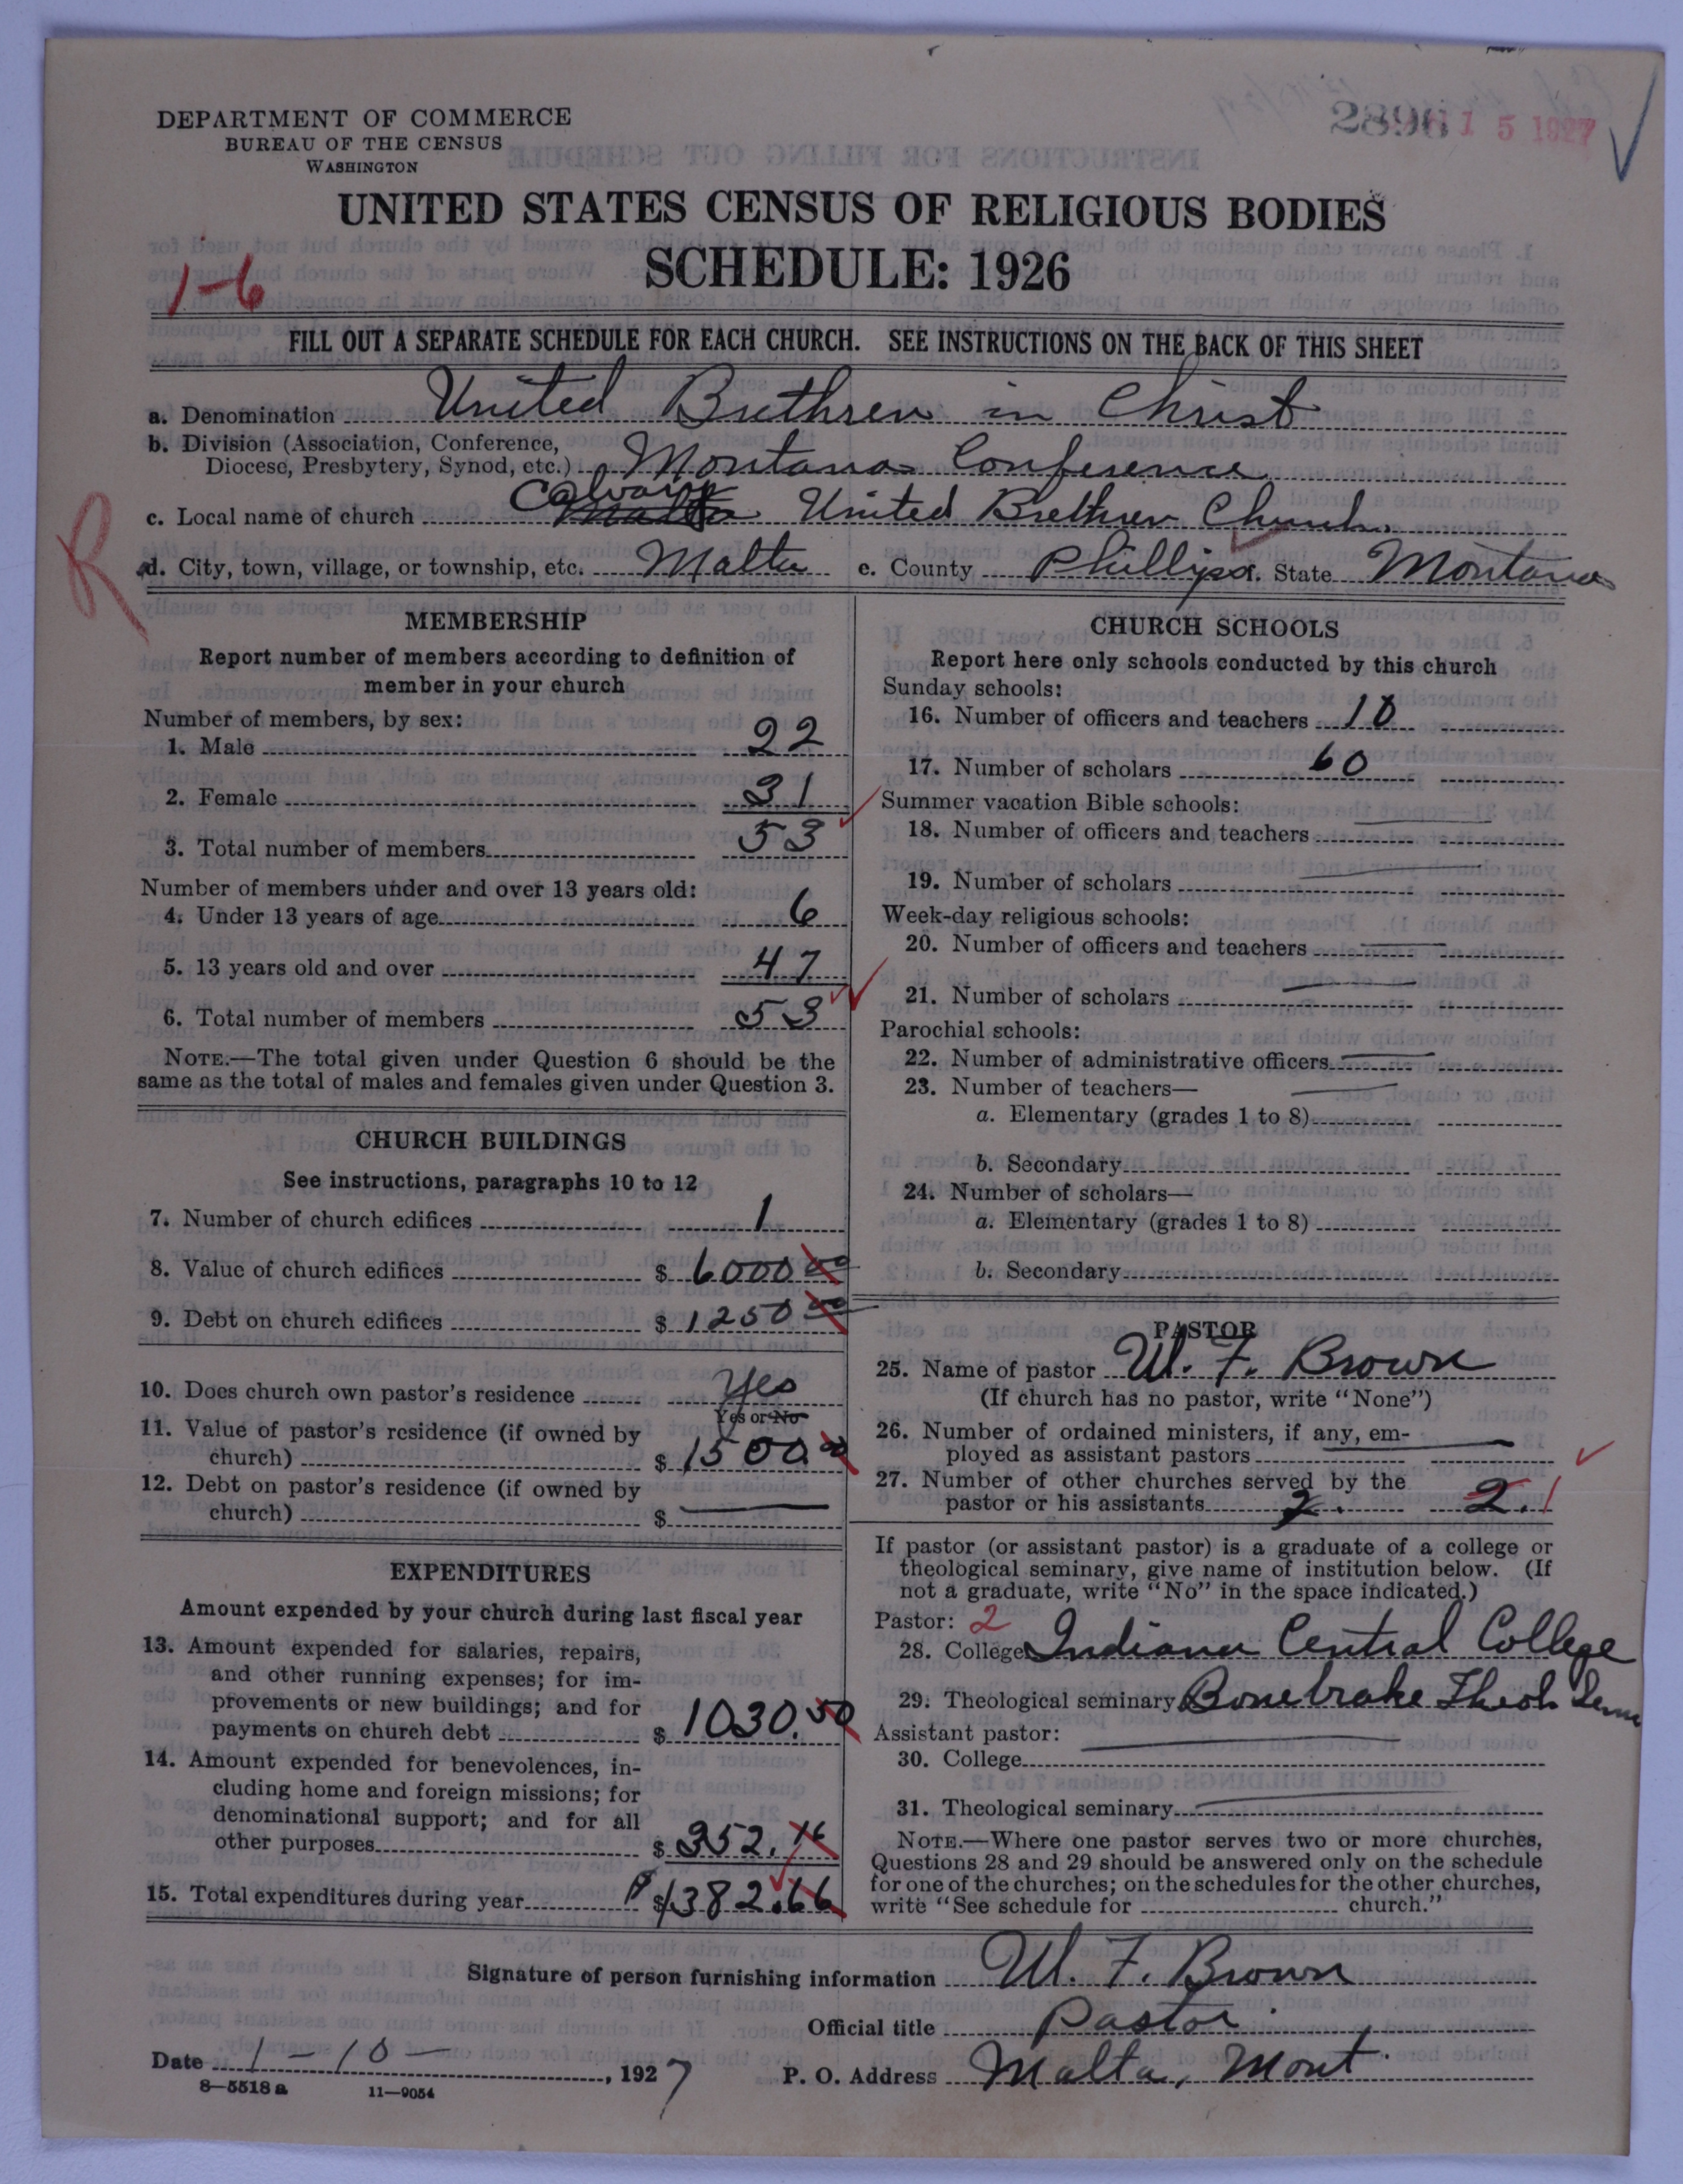 DEPARTMENT OF COMMERCE
BUREAU OF THE CENSUS
WASHINGTON
2896
15 1927
UNITED STATES CENSUS OF RELIGIOUS BODIES
SCHEDULE: 1926
1-6
FILL OUT A SEPARATE SCHEDULE FOR EACH CHURCH. SEE INSTRUCTIONS ON THE BACK OF THIS SHEET
a. Denomination United Brethren in Christ
b. Division (Association, Conference,
Diocese, Presbytery, Synod, etc.) Montana Conference
c. Local name of church Calvary Malta United Brethren Church
R
d. City, town, village, or township, etc. Malta e. County Phillips f. State Montana
MEMBERSHIP
Report number of members according to definition of
member in your church
Number of members, by sex:
1. Male 22
2. Female 31
3. Total number of members 53
Number of members under and over 13 years old:
4. Under 13 years of age 6
5. 13 years old and over 47
6. Total number of members 53
NOTE.—The total given under Question 6 should be the
same as the total of males and females given under Question 3.
CHURCH BUILDINGS
See instructions, paragraphs 10 to 12
7. Number of church edifices 1
8. Value of church edifices $ 6000 00
9. Debt on church edifices $ 1250 00
10. Does church own pastor's residence Yes
Yes or No
11. Value of pastor's residence (if owned by
church) $ 1500.00
12. Debt on pastor's residence (if owned by
church) $
EXPENDITURES
Amount expended by your church during last fiscal year
13. Amount expended for salaries, repairs,
and other running expenses; for im-
provements or new buildings; and for
payments on church debt $ 1030.50
14. Amount expended for benevolences, in-
cluding home and foreign missions; for
denominational support; and for all
other purposes $ 352.16
15. Total expenditures during year $ 1382.66
CHURCH SCHOOLS
Report here only schools conducted by this church
Sunday schools:
16. Number of officers and teachers 10
17. Number of scholars 60
Summer vacation Bible schools:
18. Number of officers and teachers
19. Number of scholars
Week-day religious schools:
20. Number of officers and teachers
21. Number of scholars
Parochial schools:
22. Number of administrative officers
23. Number of teachers—
a. Elementary (grades 1 to 8)
b. Secondary
24. Number of scholars—
a. Elementary (grades 1 to 8)
b. Secondary
PASTOR
25. Name of pastor W. F. Brown
(If church has no pastor, write "None")
26. Number of ordained ministers, if any, em-
ployed as assistant pastors
27. Number of other churches served by the
pastor or his assistants 2. 2. 1
If pastor (or assistant pastor) is a graduate of a college or
theological seminary, give name of institution below. (If
not a graduate, write "No" in the space indicated.)
Pastor: 2
28. College Indiana Central College
29. Theological seminary Bonebrake Theol. Sem
Assistant pastor:
30. College
31. Theological seminary
NOTE.—Where one pastor serves two or more churches,
Questions 28 and 29 should be answered only on the schedule
for one of the churches; on the schedules for the other churches,
write "See schedule for church."
Signature of person furnishing information W. F. Brown
Official title Pastor
Date 1-10-, 1927 P. O. Address Malta, Mont.
8—5518 a 11—9054